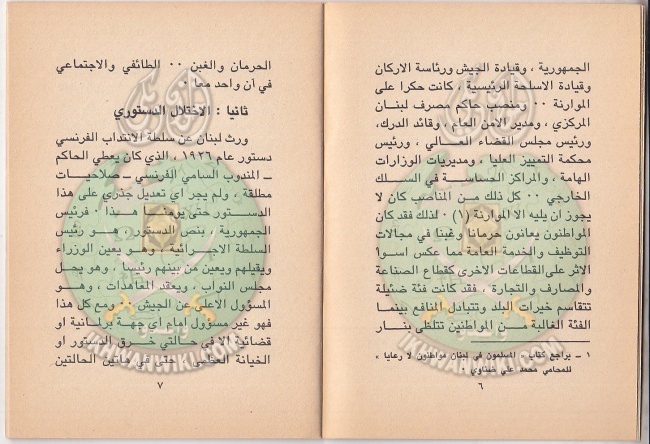 الجمهورية ، وقيادة الجيش ورئاسة الاركان
وقيادة الاسلحة الرئيسية ، كانت حكرا على
الموارنة ٠٠ ومنصب حاكم مصرف لبنان
المركزي ، ومدير الامن العام ، وقائد الدرك،
ورئيس مجلس القضاء العـالي ، ورئيس
محكمة التمييز العليا ، ومديريات الوزارات
الهامة ، والمراكز الحساسة في السـلك
الخارجي ٠٠ كل ذلك مـن المناصب كان لا
يجوز ان يليه الا الموارنة (١) ٠ لذلك فقد كان
المواطنون يعانون حرمانا وغبنا في مجالات
التوظيف والخدمة العامة مما عكس اسـوا
الاثر على القطاعات الاخرى كقطاع الصناعة
والمصارف والتجارة ، فقد كانت فئة ضئيلة
تتقاسم خيرات البلد وتتبادل المنافع بينما
الفئة الغالبة مـن المواطنين تتلظى بنـار
١ ــ يراجع كتاب « المسلمون في لبنان مواطنون لا رعايا »
للمحامي محمد علي ضناوي ٠
٦
الحرمان والغبن ٠٠ الطائفي والاجتماعي
في آن واحد معا ٠
ثانيا : الاختلال الدستوري
ورث لبنان عن سلطة الانتداب الفرنسي
دستور عام ١٩٢٦ ، الذي كان يعطي الحاكم
ــ المندوب السامي الفرنسي ــ صلاحيات
مطلقة ، ولم يجر اي تعديل جذري على هذا
الدستور حتى يومنا هذا ٠ فرئيس
الجمهورية ، بنص الدستور ، هو رئيس
السلطة الاجرائية ، وهو يعين الوزراء
ويقيلهم ويعين من بينهم رئيسا ، وهو يحل
مجلس النواب ، ويعقد المعاهدات ، وهـو
المسؤول الاعلى عن الجيش ٠ ومع كل هذا
فهو غير مسؤول امام اي جهة برلمانية او
قضائية الا في حالتي خرق الدستور او
الخيانة العظمى ، حتى في هاتين الحالتين
٧
IKHWANWIKI.COM
IKHWANWIKI.COM